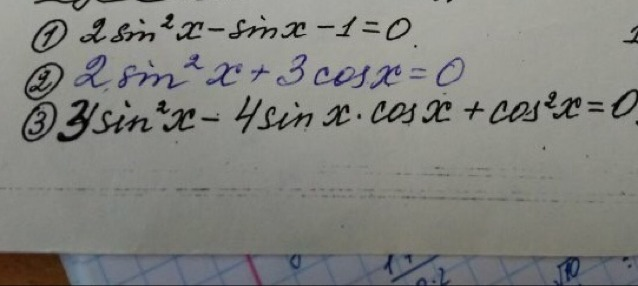 ① 2 sin²x - sin x - 1 = 0
② 2 sin²x + 3 cos x = 0
③ 3 sin²x - 4 sin x · cos x + cos²x = 0
√10